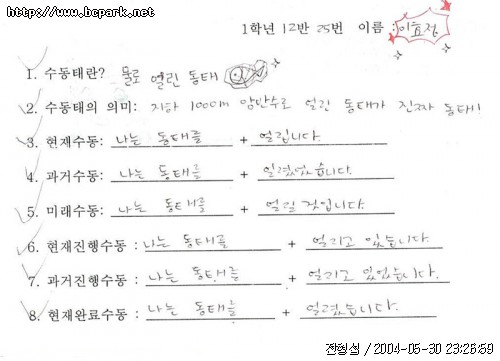 http://www.bcpark.net
1학년 12반 25번 이름 : 이효정
1. 수동태란? 물로 얼린 동태
2. 수동태의 의미: 지하 1000m 암반수로 얼린 동태가 진짜 동태!
3. 현재수동: 나는 동태를 + 얼립니다.
4. 과거수동: 나는 동태를 + 얼렸었습니다.
5. 미래수동: 나는 동태를 + 얼릴 것입니다.
6. 현재진행수동 : 나는 동태를 + 얼리고 있습니다.
7. 과거진행수동 : 나는 동태를 + 얼리고 있었습니다.
8. 현재완료수동 : 나는 동태를 + 얼렸습니다.
전형섭 / 2004-05-30 23:26:59